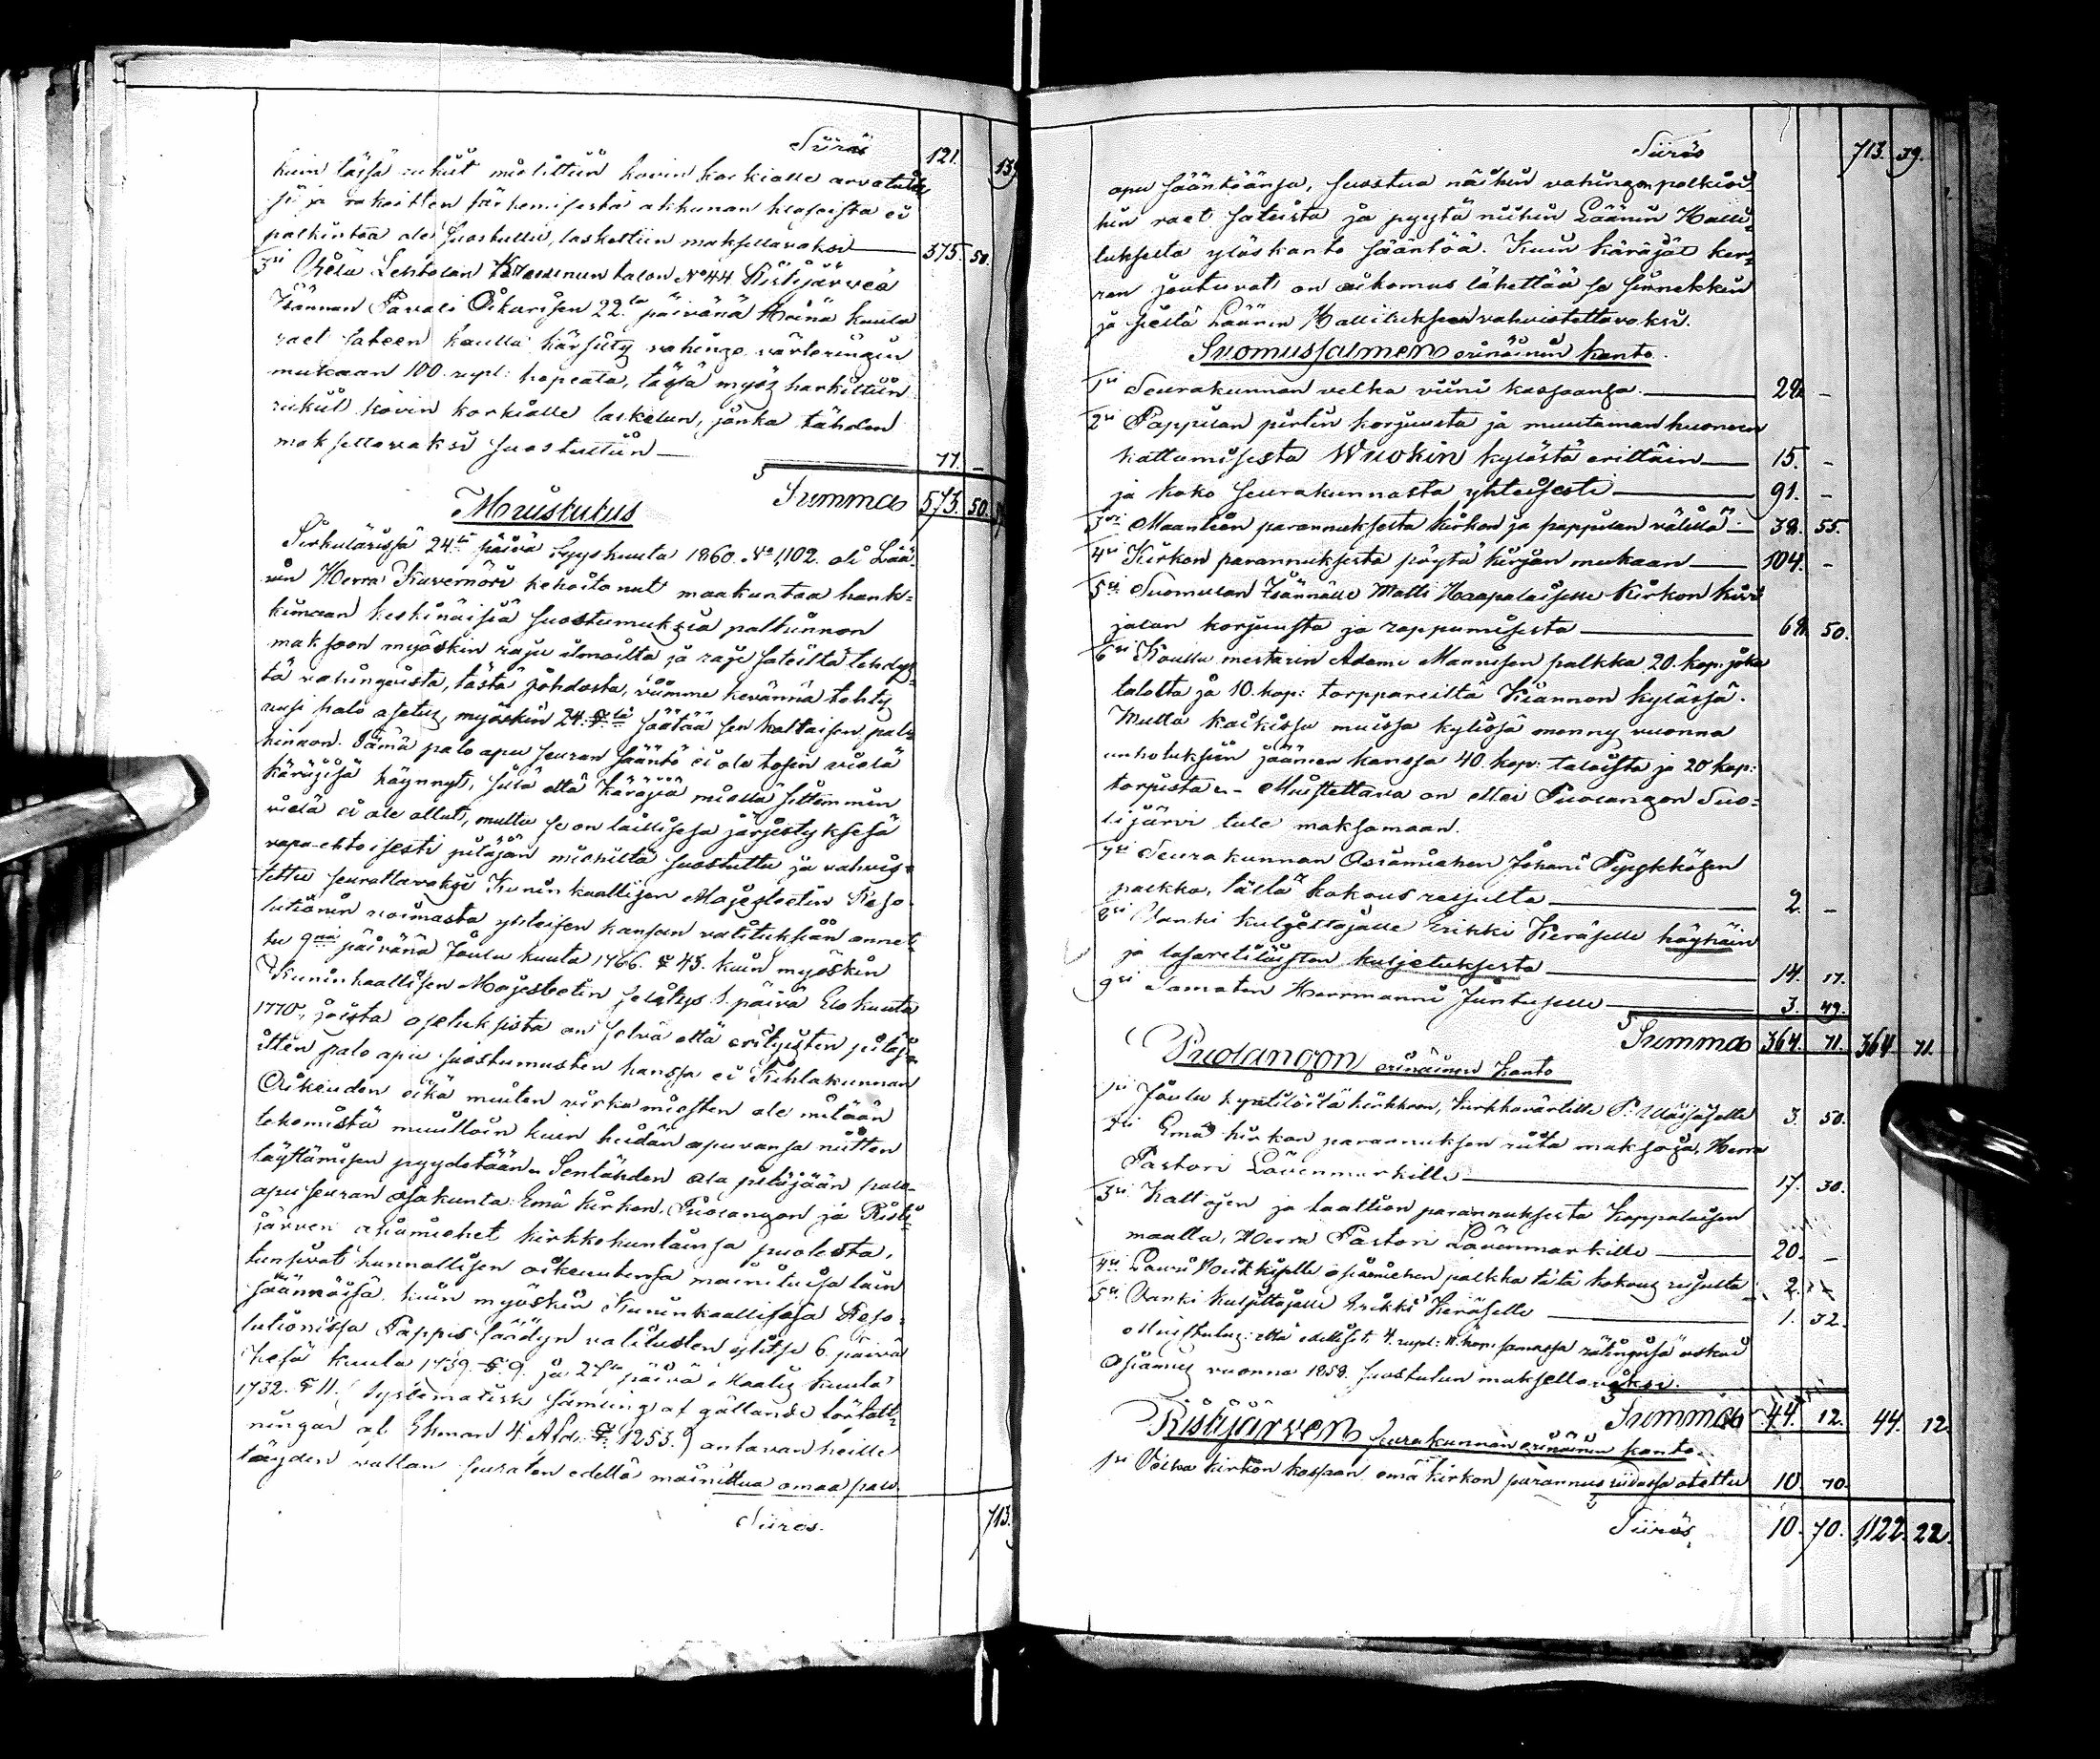 Siirös 121. 139
kuin tässä rukiit mielittiin kovin korkialle arvatuiksi
si ja rakeitten särkemisestä akkunan klaseista ei
palkintoa ole suostuttu, laskettiin maksettavaksi 375. 50.
3si Lehtolan talon No 44 Ristijärveä
Isännän Paavali Oikarisen 22.ta päivänä Heinä kuuta
raet sateen kautta kärsitty vahinge värteringin
mukaan 100. rupl: hopeata, tässä myös harkittiin
rukiit kovin korkialle lasketun, jonka tähden
maksettavaksi suostuttiin 77. –
Summa 573. 50.
Muistutus
Sirkulärissä 24.tä päivä Syyskuuta 1860. No 1,102. oli Lää-
nin Herra Kuvernöri kehoitonut maakuntaa hank-
kimaan keskinäisiä suostumuksia palkinnon
maksoon myöskin raju ilmoilta ja raje sateilta tehdys-
tä vahingoista, tästä johdosta, viimme kevännä tehty
uusi palo asetus, myöskin 24. § tä säätää sen kaltaisen pal-
kinnon. Tämä palo apu seuran sääntö ei ole tosin vielä
käräjisä käynnyt, siitä että käräjiä meillä sittemmin
vielä ei ole ollut, mutta se on laillisesa järjestyksesä
vapa-ehtoisesti pitäjän miehiltä suostuttu ja vahvis-
tettu seurattavaksi Kuninkaallisen Majesteetin Reso-
lutionin voimasta yhteisen kansan valituksiin annet-
tu 9nä päivänä Joulu kuuta 1766. § 43. kuin myöskin
Kuninkaallisen Majesteetin selitys 1. päivä Elo kuuta
1770, joista asetuksista on selvä että erityisten pitäjä-
itten palo apu suostumusten kanssa ei Kihlakunnan
Oikeuden eikä muiten virka miesten ole mitään
tekemistä muulloin kuin heidän apuvansa niitten
täyttämisen pyydetään. Sentähden ala pitäjään palo-
apu seuran osakunta: Emä kirkon, Puolangon ja Risti-
järven asiamiehet kirkkokuntainsa puolesta,
tunsivat kunnallisen oikeutensa mainituisa lain
säännöisä, kuin myöskin Kuninkaallisesa Reso-
lutionissa Pappis-säädyn valitusten ylitse 6. päivä
Kesä kuuta 1739. § 9. ja päivä Maalis kuuta
1732. § 11. (Systematisk samling af gällande författ-
ningar af Ehman 4 Afd: § 1253.) antavan heille
täyden vallan seuraten edellä mainittua omaa palo-
Siirös. 713.
Siirös 713. 39.
apu sääntöänsä, suostua näihin vahingonpalkioi-
hin raet sateista ja pyytä niihin Läänin Halli-
tukselta ylöskanto sääntöä. Kuin käräjät ker-
ran joutuvat on aikomus lähettää se sinnekkin
ja sieltä Läänin Hallitukseen vahvistettavaksi.
Suomussalmen erinäinen kanto.
1si Seurakunnan velka viini kassaansa 28. –
2si Pappilan pirtin korjuusta ja muutaman huoneen
kattamisesta Wuokin kylästä erittäin 15. –
ja koko seurakunnasta yhteisesti 91. –
3si Maantien parannuksesta kirkon ja pappilan välillä 38. 55.
4si Kirkon parannuksesta pöytä kirjan mukaan 104. –
5si Suomulan Isännälle Matti Haapalaiselle Kirkon kivi
jalan korjuusta ja rappamisesta 68. 50.
6si Koulu mestarin Adami Mannisen palkka 20. kop: joka
talosta ja 10. kop: torppareilta Kiannon kylässä.
Mutta kaikissa muissa kylissä menny vuonna
unhotuksiin jäänen kanssa 40. kop: taloista ja 20 kop:
torpista. – Muistettava on ettei Puolangon Suo-
lijärvi tule maksamaan.
7si Seurakunnan Asiamiehen Johani Pyykkösen
palkka, tästä kokous reisulta 2. –
8si Vanki kuljettajalle Erikki Keräselle köyhäin
ja lasaretiläisten kuljetuksesta 14. 17.
9si Samaten Herrmanni Juntuselle 3. 49.
Summa 364. 71. 364 71.
Puolangon erinäinen Kanto
1si Joulu kyntilöistä kirkkoon, kirkkovärtille P: Väisäselle 3. 50.
2si Emä kirkon parannuksen riita maksoja, Herra
Pastori Lövenmarkille 17. 30.
3si Kattojen ja laattion parannuksesta Koppalaisen
maalla, Herra Pastori Lövenmarkille 20. –
4si Lauri asiamiehen palkka tätä kokous reisulta 2. –
5si Vanki kuljettajalle Erikki Keräselle 1. 32.
Muistutus: että edelliset 4. rupl: 11. kop: samassa rätingissä
asiamies vuonna 1858. suostutun maksettavaksi.
Summa 44. 12. 44. 12.
Ristijärven seurakunnan erinäinen kanto
1si Velka kirkon kassaan emä kirkon parannus riidassa otettu 10. 70.
Siirös 10. 70. 1,122. 22.